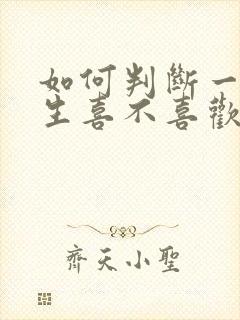 如何判斷一
生喜不喜歡
齊天小聖